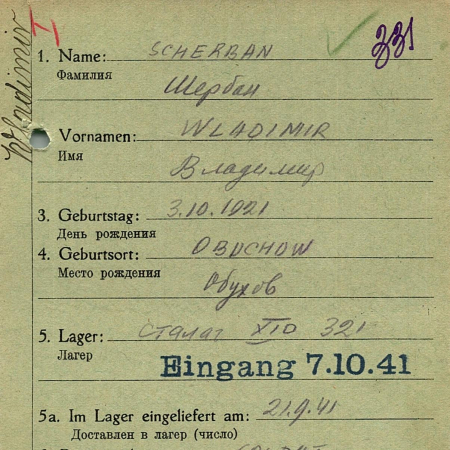 Wladimir
331
1. Name: SCHERBAN
Фамилия
Щербан
Vornamen: WLADIMIR
Имя
Владимир
3. Geburtstag: 3.10.1921
День рождения
4. Geburtsort: OBUCHOW
Место рождения
Обухов
5. Lager: Сталаг XID 321
Лагерь
Eingang 7.10.41
5a. Im Lager eingeliefert am: 21.9.41
Доставлен в лагерь (число)